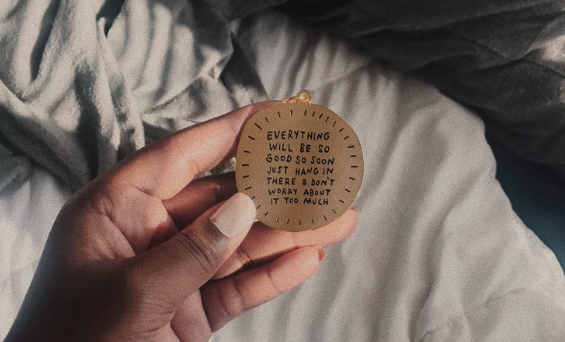 EVERYTHING
WILL BE SO
GOOD SO SOON
JUST HANG IN
THERE & DON'T
WORRY ABOUT
IT TOO MUCH